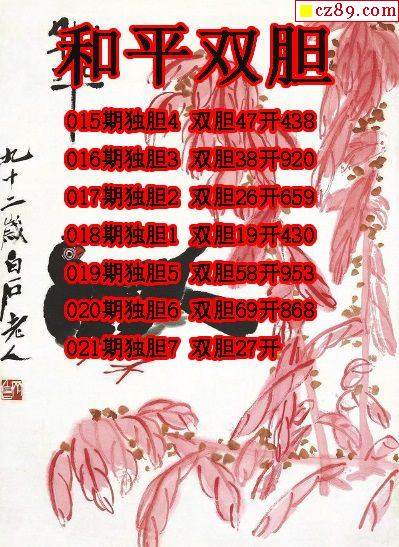 cz89.com
和平双胆
015期独胆4 双胆47开438
016期独胆3 双胆38开920
017期独胆2 双胆26开659
018期独胆1 双胆19开430
019期独胆5 双胆58开953
020期独胆6 双胆69开868
021期独胆7 双胆27开
九十二岁白石老人